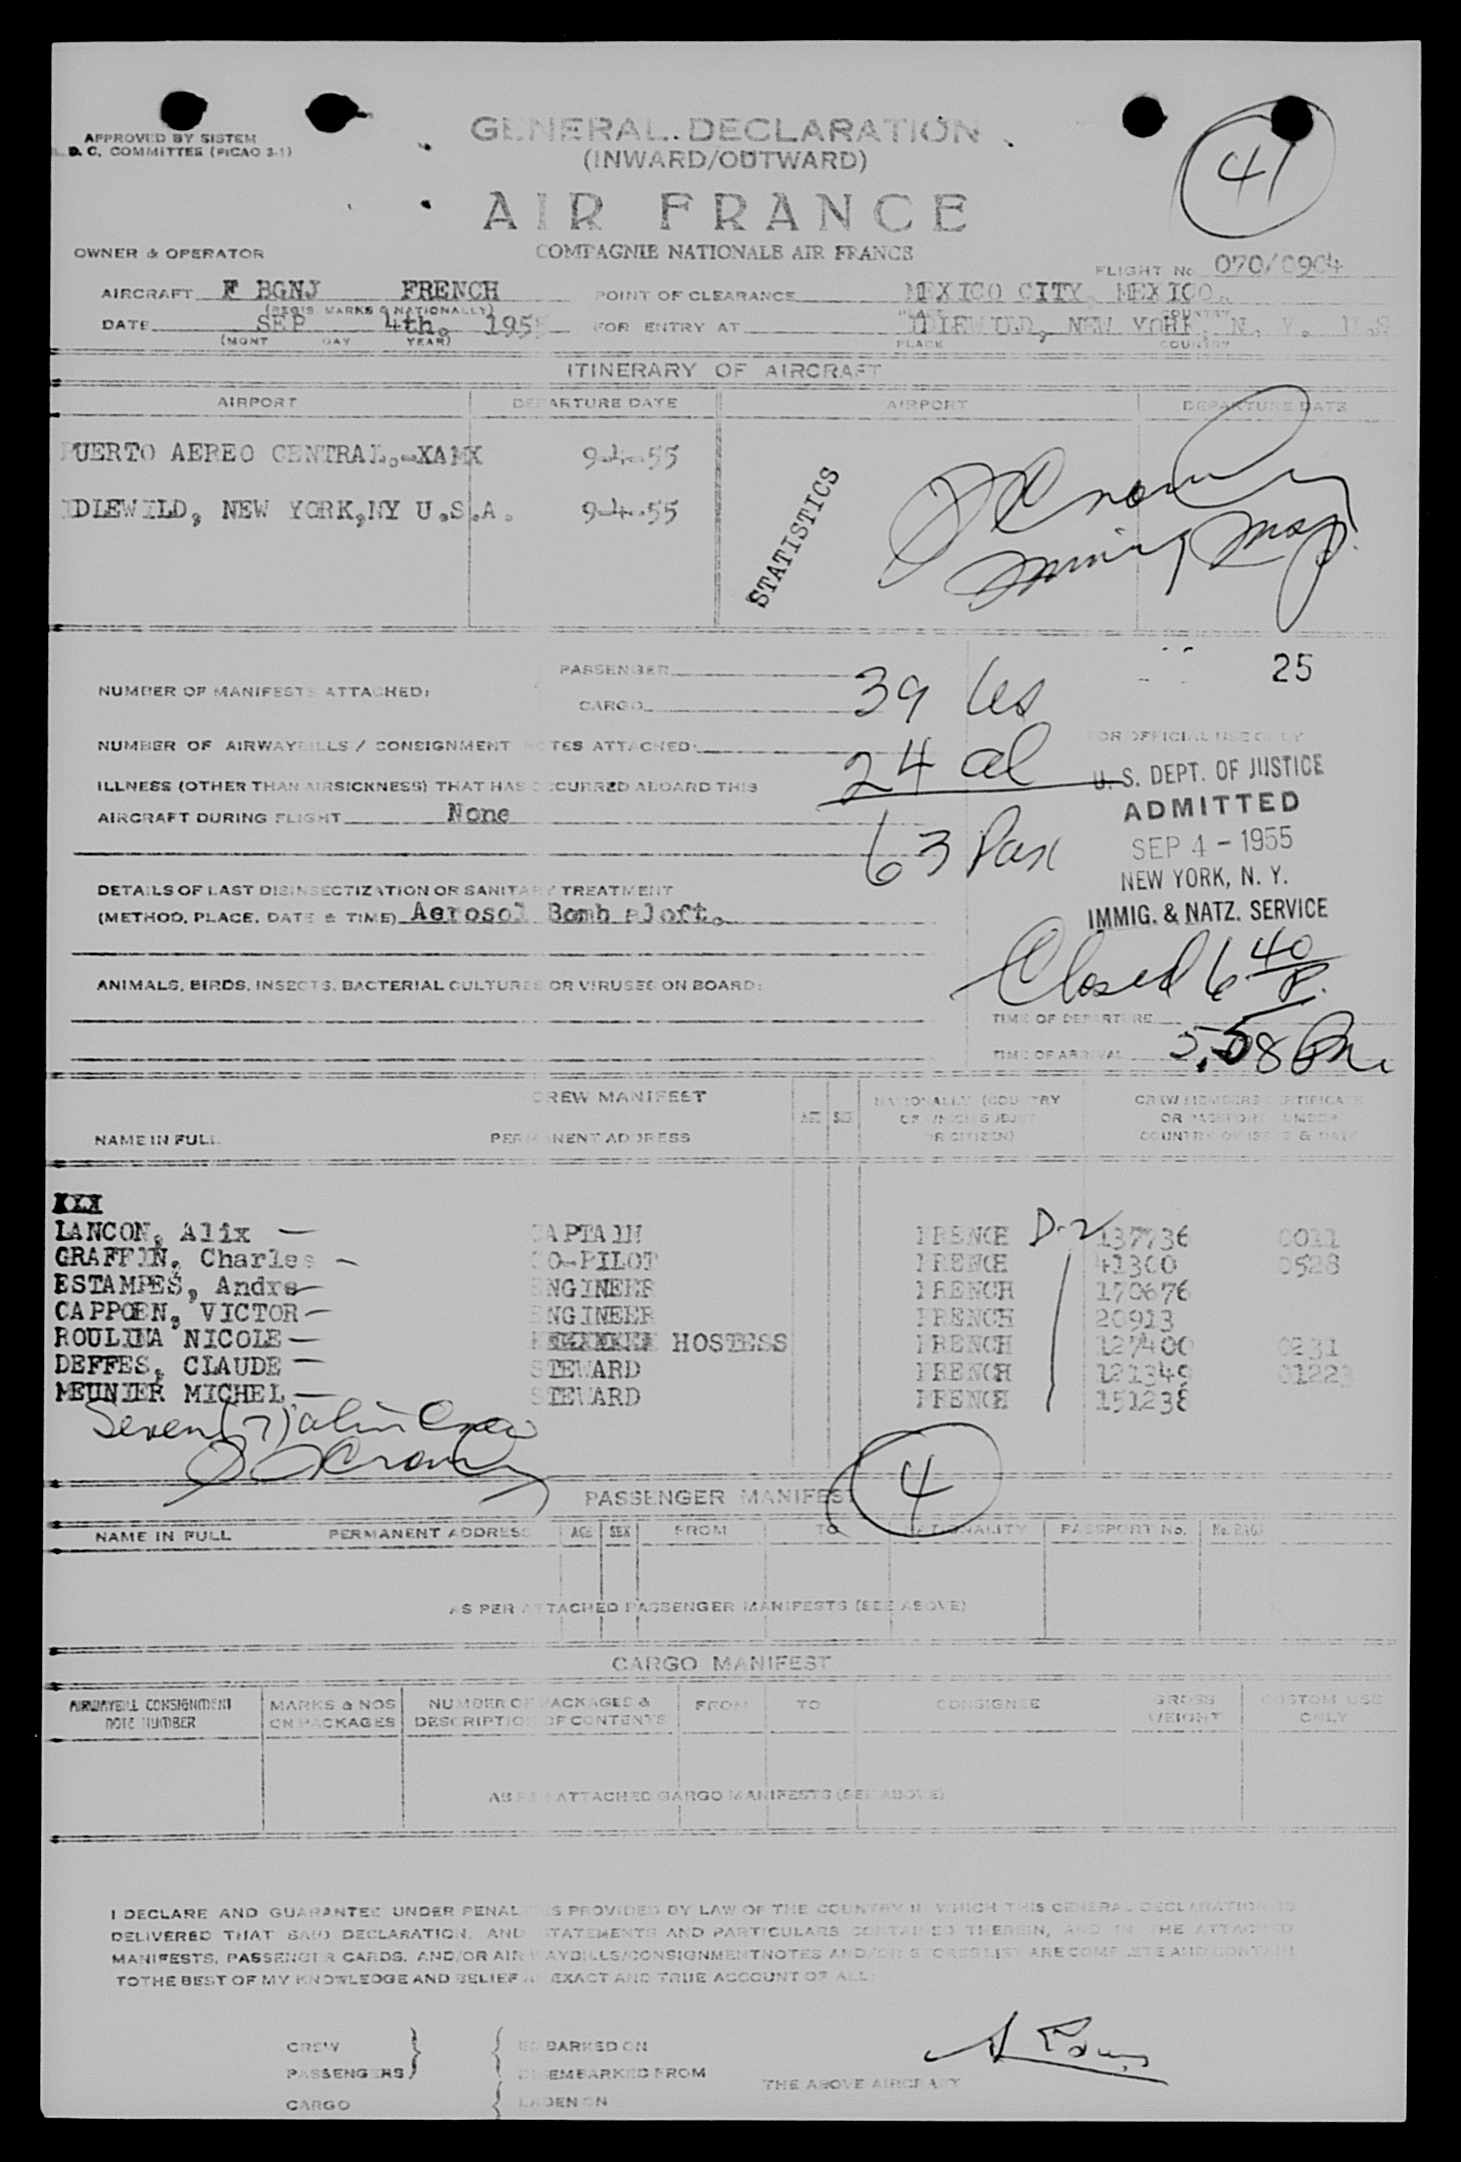 APPROVED BY SISTEM
D. C. COMMITTEE (PICAO 3-1)
GENERAL DECLARATION
(INWARD/OUTWARD)
41
AIR FRANCE
OWNER & OPERATOR COMPAGNIE NATIONALE AIR FRANCE
FLIGHT No 070/0904
AIRCRAFT F BGNJ FRENCH POINT OF CLEARANCE MEXICO CITY, MEXICO.
(REGIS. MARKS & NATIONALLY) COUNTRY
DATE SEP 4th. 195 FOR ENTRY AT IDLEWILD, NEW YORK, N. Y. U.S
(MONT DAY YEAR) PLACE COUNTRY
ITINERARY OF AIRCRAFT
AIRPORT DEPARTURE DATE AIRPORT DEPARTURE DATE
PUERTO AEREO CENTRAL.-XAMX 9-4-55
IDLEWILD, NEW YORK,NY U.S.A. 9-4-55
STATISTICS
25
PASSENGER
NUMBER OF MANIFESTS ATTACHED:
CARGO
39 Us
NUMBER OF AIRWAYBILLS / CONSIGNMENT NOTES ATTACHED:
FOR OFFICIAL USE ONLY
24 al
ILLNESS (OTHER THAN AIRSICKNESS) THAT HAS OCCURRED ABOARD THIS
AIRCRAFT DURING FLIGHT None
63 Pax
U. S. DEPT. OF JUSTICE
ADMITTED
SEP 4 - 1955
NEW YORK, N. Y.
IMMIG. & NATZ. SERVICE
DETAILS OF LAST DISINSECTIZATION OR SANITARY TREATMENT
(METHOD, PLACE, DATE & TIME) Aerosol Bomb aloft.
Closed 6 40 P.
ANIMALS, BIRDS, INSECTS, BACTERIAL CULTURES OR VIRUSES ON BOARD:
TIME OF DEPARTURE
TIME OF ARRIVAL
CREW MANIFEST
NAME IN FULL PERMANENT ADDRESS AGE SEX NATIONALLY (COUNTRY
OF WHICH SUBJECT
OR CITIZEN)
CREW MEMBERS CERTIFICATE
OR PASSPORT NUMBER
COUNTRY OF ISSUE & DATE
XXX
LANCON, Alix — CAPTAIN FRENCH D-2 137736 0011
GRAFFIN, Charles — CO-PILOT FRENCH 41300 0528
ESTAMPES, Andre — ENGINEER FRENCH 170676
CAPPOEN, VICTOR — ENGINEER FRENCH 20913
ROULINA NICOLE — HOSTESS FRENCH 127400 0231
DEFFES, CLAUDE — STEWARD FRENCH 121349 01223
MEUNIER MICHEL — STEWARD FRENCH 151238
Seven (7) alien Crew
4
PASSENGER MANIFEST
NAME IN FULL PERMANENT ADDRESS AGE SEX FROM TO NATIONALITY PASSPORT No.
AS PER ATTACHED PASSENGER MANIFESTS (SEE ABOVE)
CARGO MANIFEST
AIRWAYBILL CONSIGNMENT NOTE NUMBER
MARKS & NOS ON PACKAGES
NUMBER OF PACKAGES & DESCRIPTION OF CONTENTS
FROM TO CONSIGNEE
GROSS WEIGHT
CUSTOM USE ONLY
AS PER ATTACHED CARGO MANIFESTS (SEE ABOVE)
I DECLARE AND GUARANTEE UNDER PENALTIES PROVIDED BY LAW OF THE COUNTRY IN WHICH THIS GENERAL DECLARATION IS
DELIVERED THAT SAID DECLARATION, AND STATEMENTS AND PARTICULARS CONTAINED THEREIN, AND IN THE ATTACHED
MANIFESTS, PASSENGER CARDS, AND/OR AIR WAYBILLS/CONSIGNMENTNOTES AND/OR STORESLIST ARE COMPLETE AND CONTAIN
TOTHE BEST OF MY KNOWLEDGE AND BELIEF AN EXACT AND TRUE ACCOUNT OF ALL:
CREW EMBARKED ON
PASSENGERS DISEMBARKED FROM THE ABOVE AIRCRAFT
CARGO LADEN ON